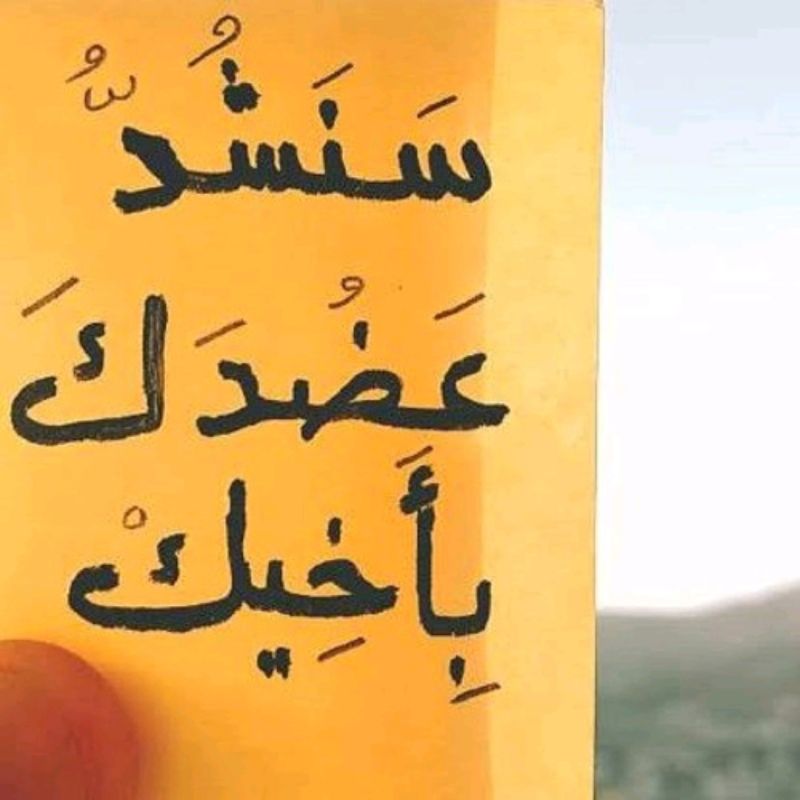 سَنَشُدُّ
عَضُدَكَ
بِأَخِيكْ